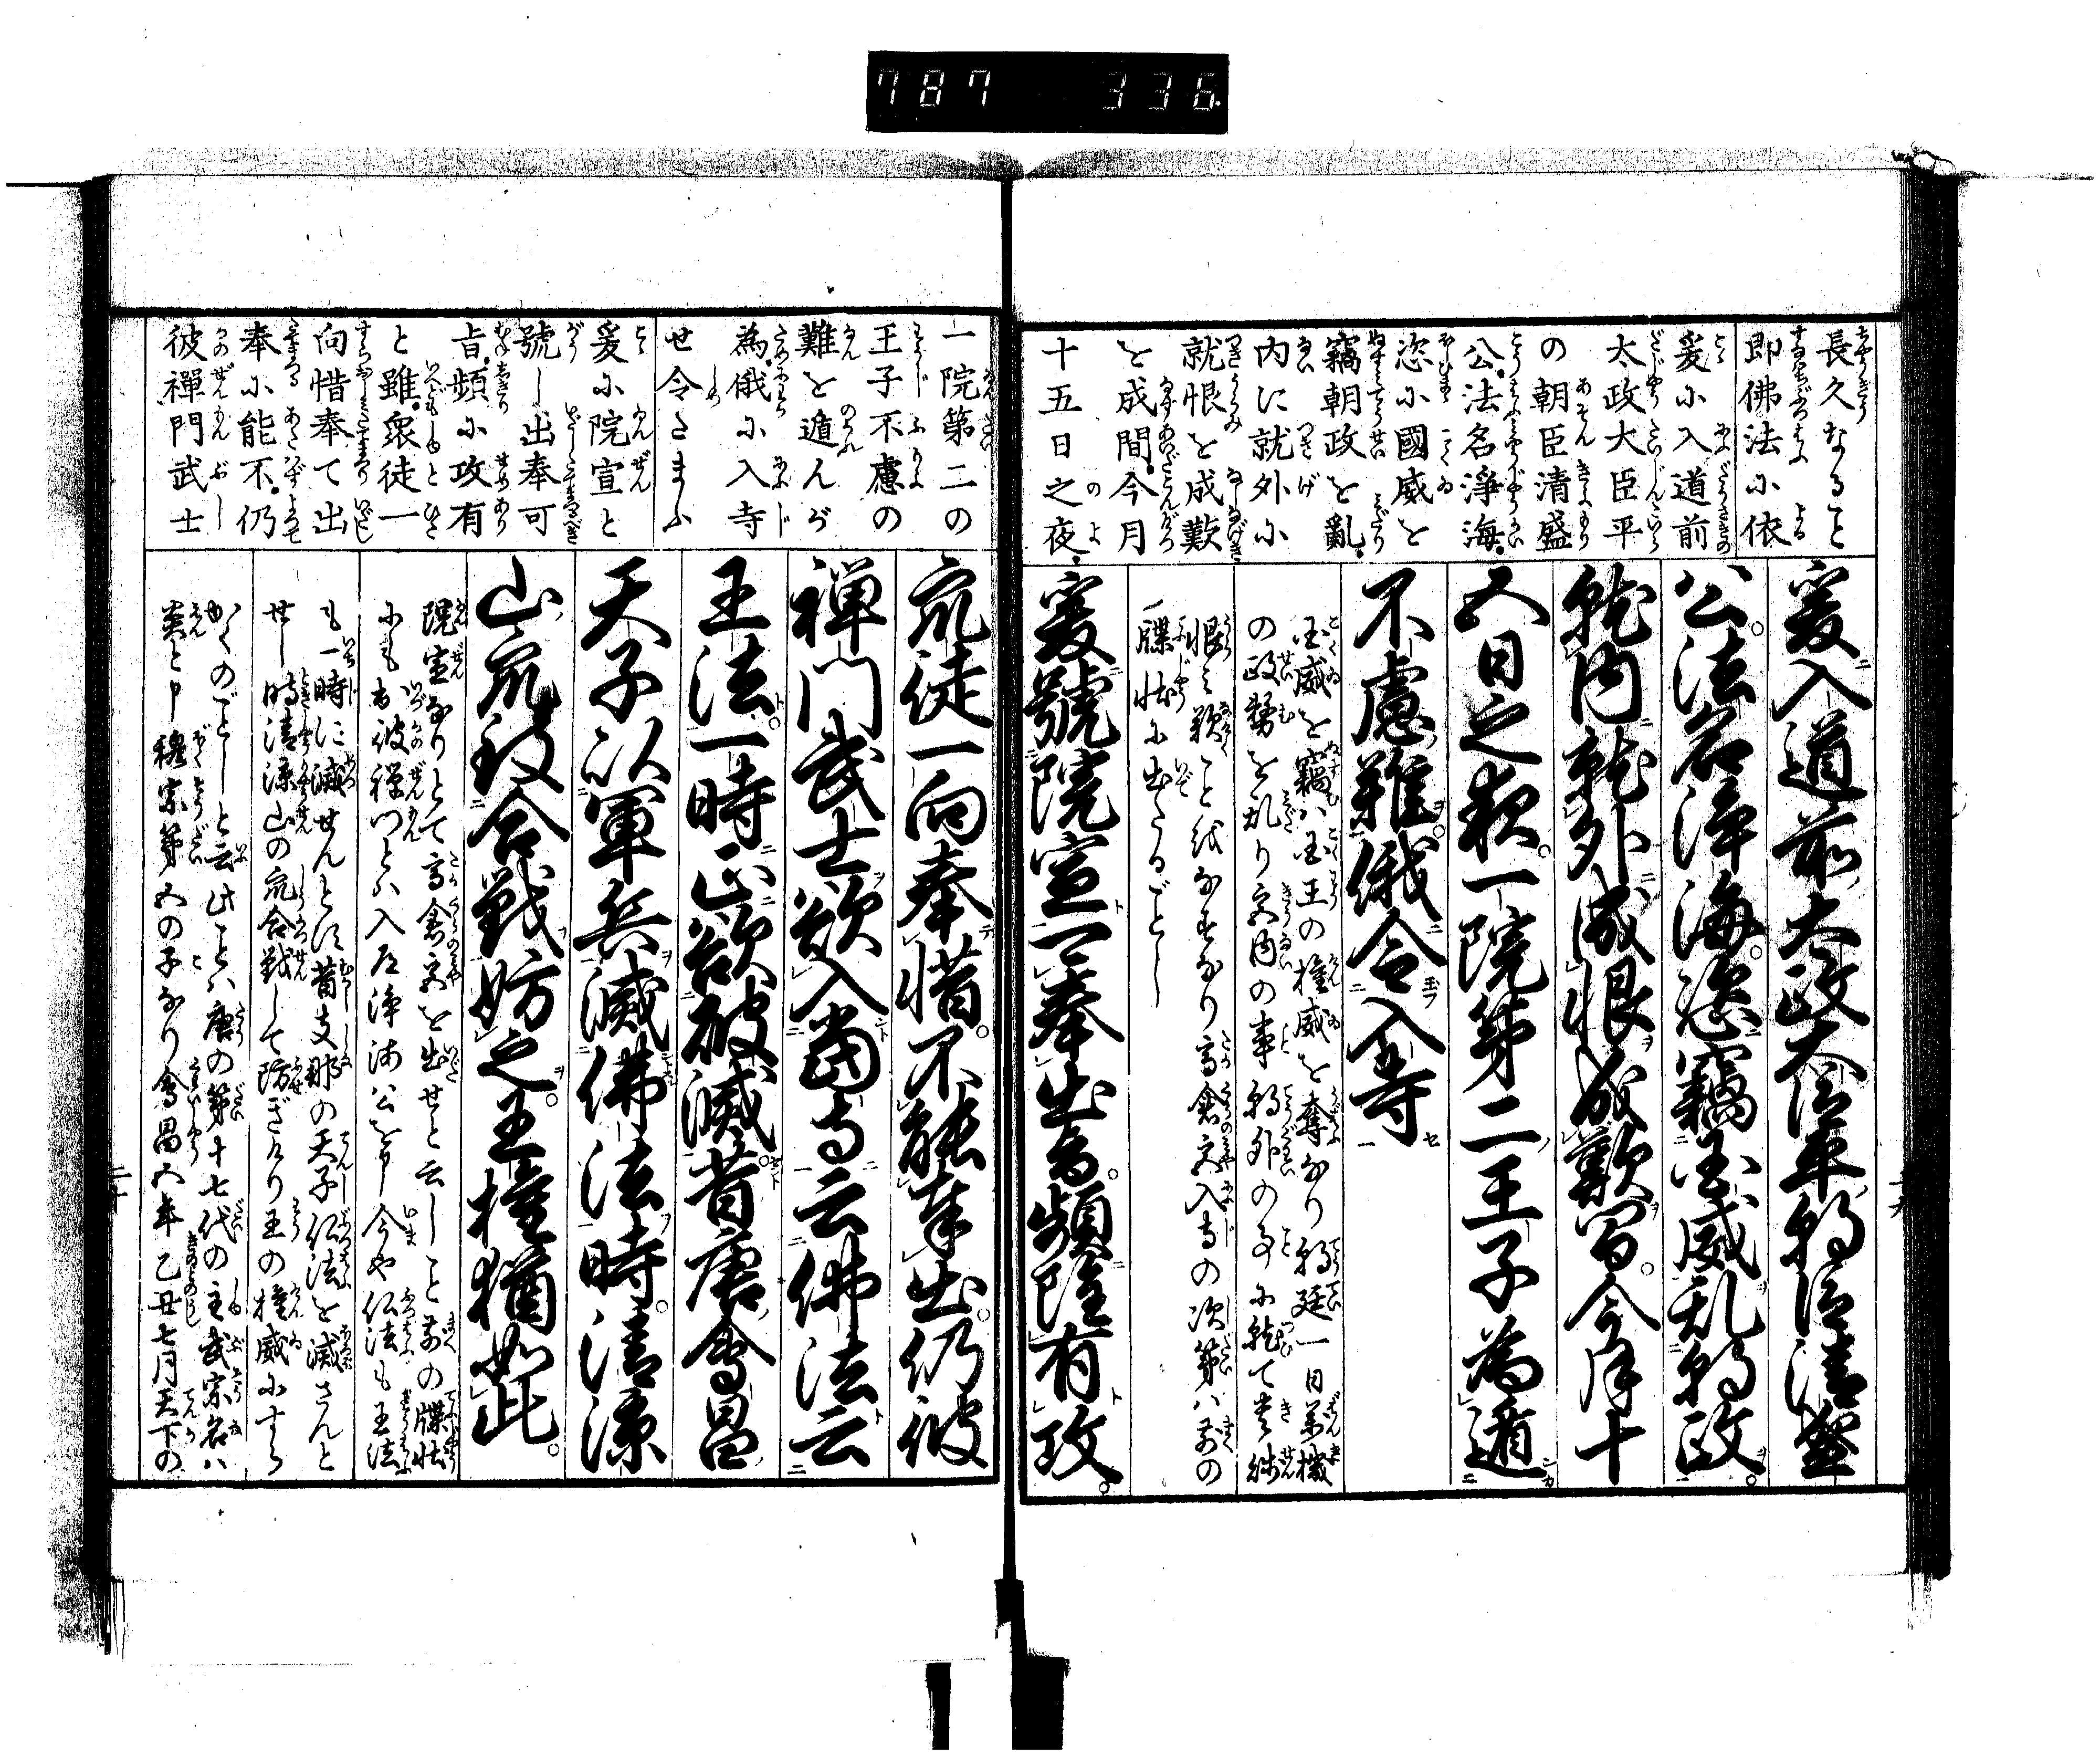 787 336
長久なること
即佛法に依
爰に入道前
太政大臣平
の朝臣清盛
公法名浄海
恣に國威を
竊朝政を亂
内に就外に
就恨を成歎
を成間今月
十五日之夜
爰入道前太政大臣平朝臣清盛
公法名浄海恣竊国威乱朝政
就内就外成恨成歎間今月十
五日之夜一院第二王子為遁
不慮難俄令入寺
国威を竊むハ国王の権威を奪なり朝廷一日万機
の政務を乱り
恨ミ歎こと
牒状に出たるごとし
爰號院宣可奉出旨頻雖有攻
一院第二の
王子不慮の
難を遁んが
為俄に入寺
せ令たまふ
爰に院宣と
號し出奉可
旨頻に攻有
と雖衆徒一
向惜奉て出
奉に能不仍
彼禪門武士
衆徒一向奉惜不能奉出仍彼
禅門武士欲入當寺云佛法云
王法一時正欲破滅昔唐會昌
天子以軍兵滅佛法時清凉
山衆致合戦妨之王権猶如此
院宣なりとて高倉宮を出せと云しこと前の牒状
にも有彼禅門とハ入道浄海公を申今や仏法も王法
も一時に滅せんとす昔支那の天子仏法を滅さんと
せし時清凉山の衆合戦して防ぎけり王の権威にすら
かくのごとしと云此ことハ唐の第十七代の主武宗名ハ
炎と申穆宗第五の子なり會昌五年乙丑七月天下の
二十